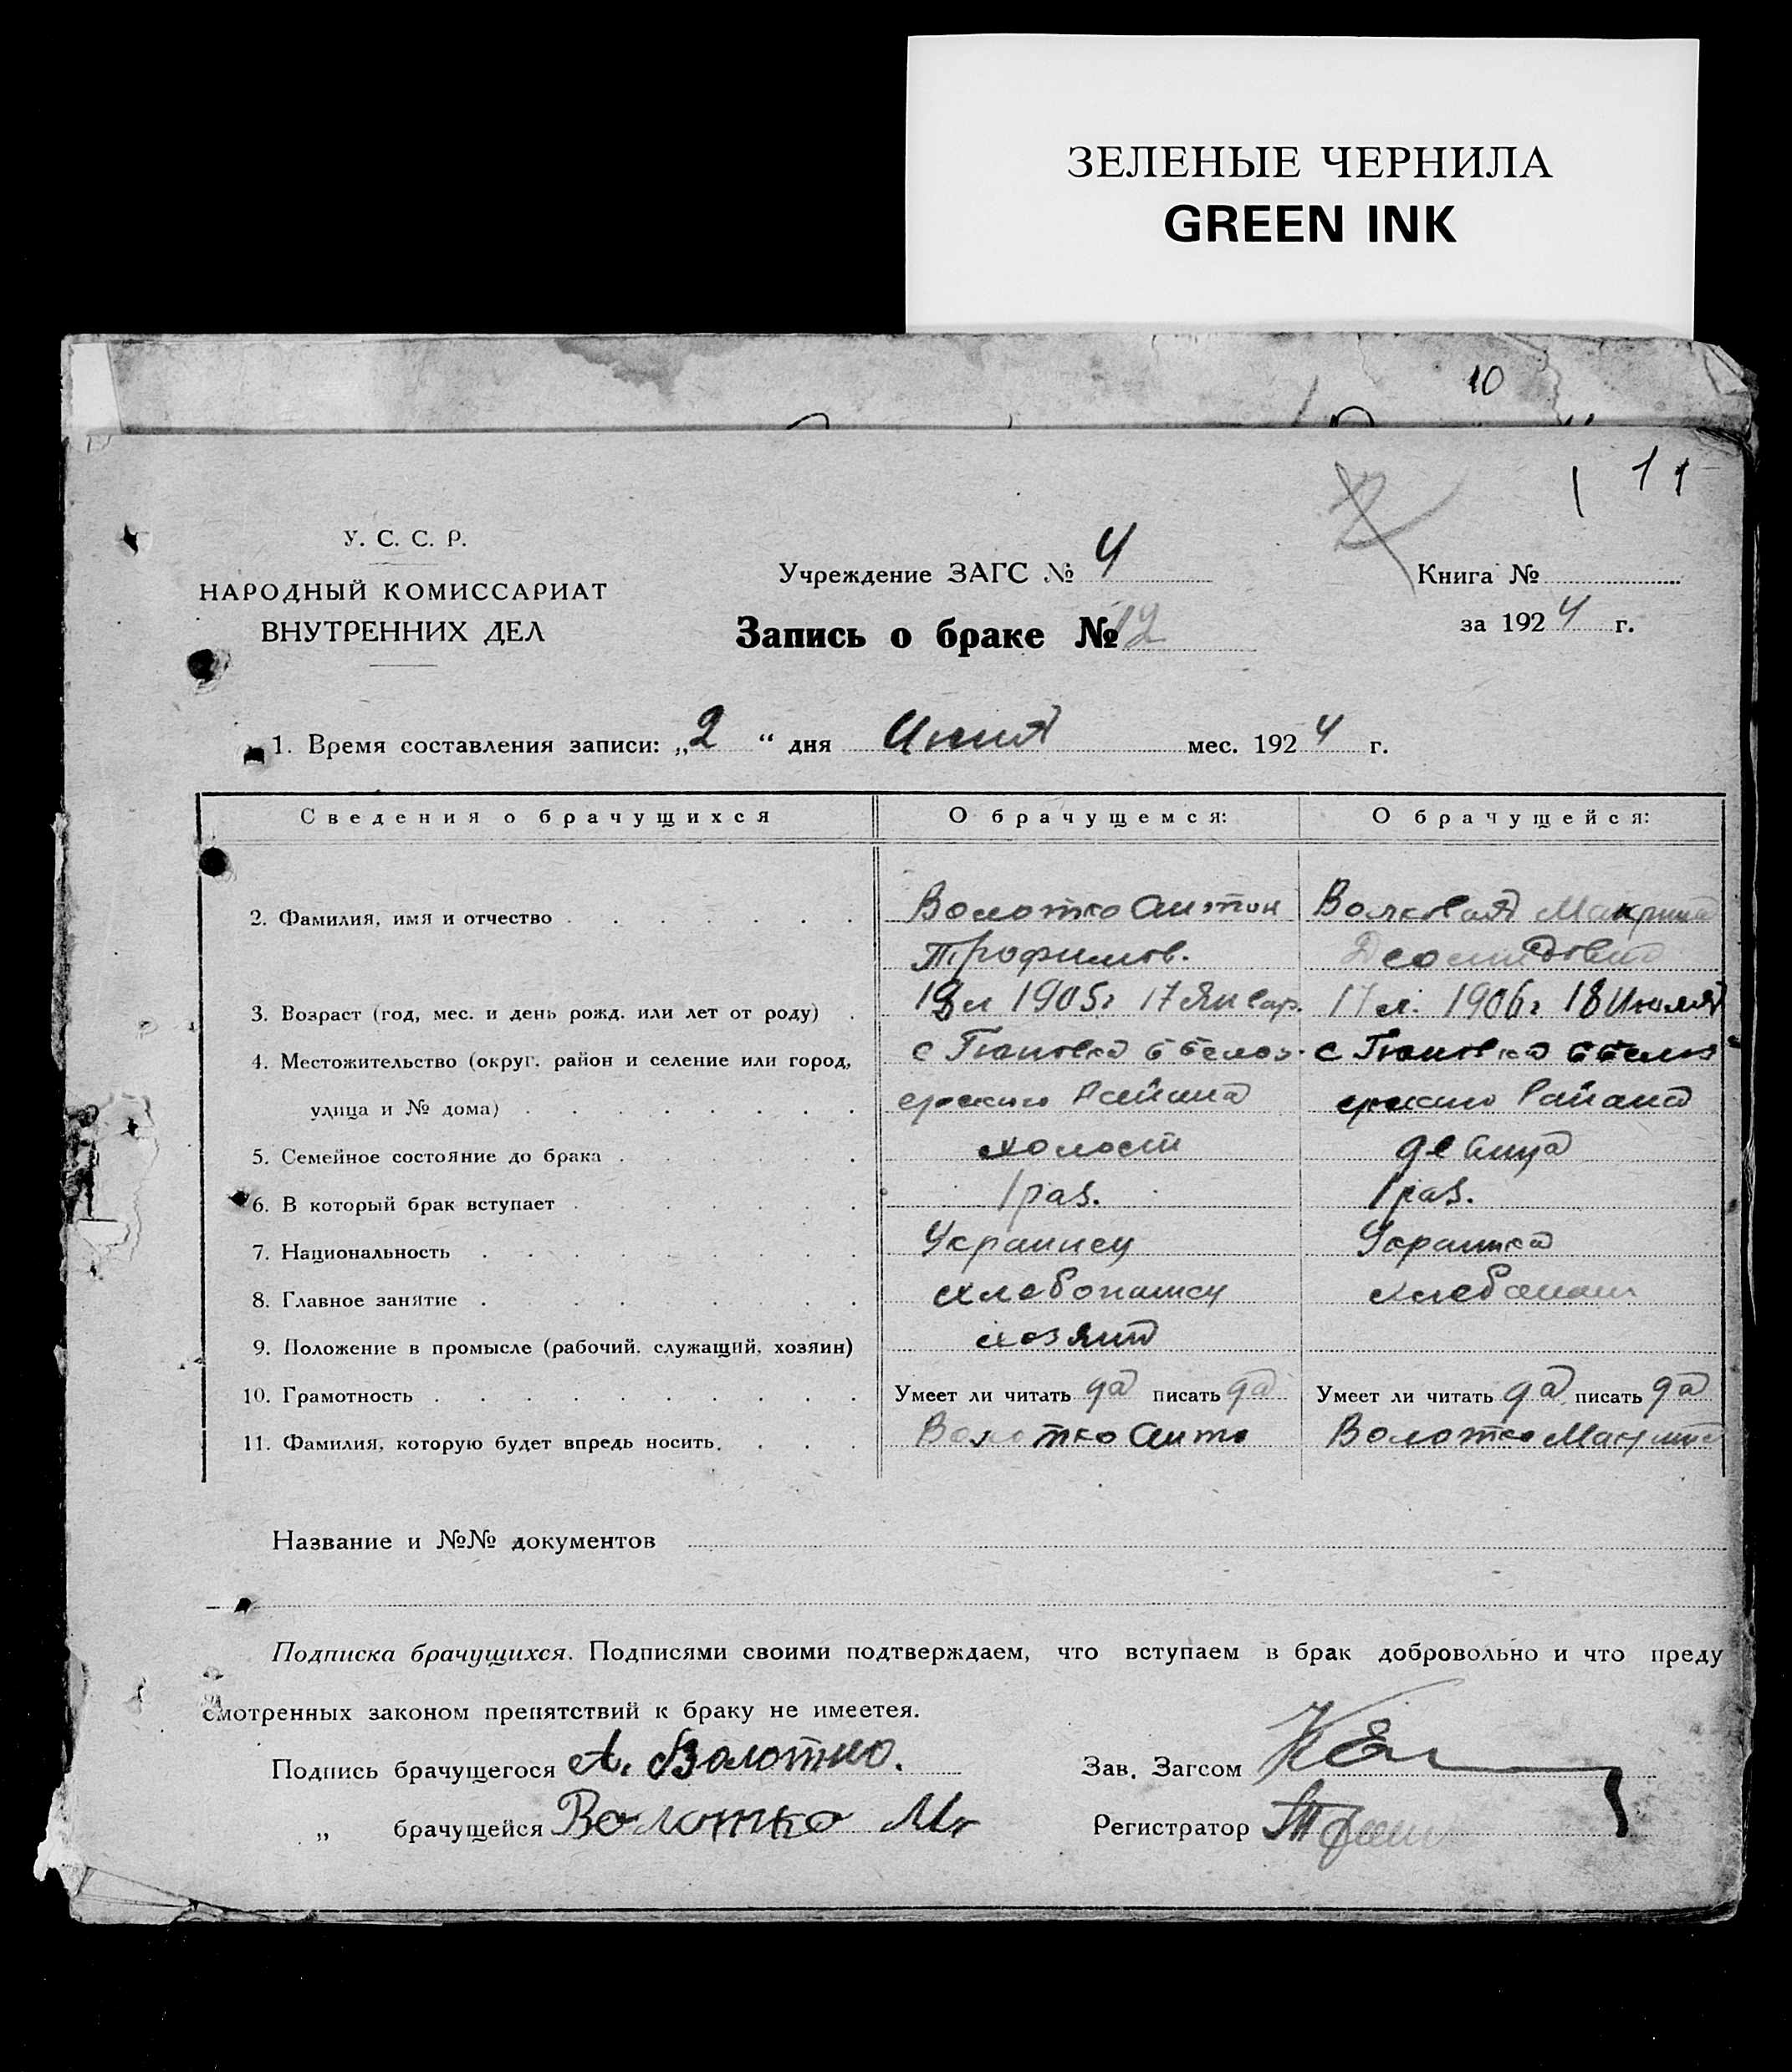 ЗЕЛЕНЫЕ ЧЕРНИЛА
GREEN INK
10
11
У. С. С. Р.
НАРОДНЫЙ КОМИССАРИАТ
ВНУТРЕННИХ ДЕЛ
Учреждение ЗАГС № 4
Запись о браке № 12
Книга №
за 1924 г.
1. Время составления записи: „2 “ дня Июня мес. 1924 г.
Сведения о брачущихся О брачущемся: О брачущейся:
2. Фамилия, имя и отчество Волотко Антон Волковая Макрина
Трофимов.
3. Возраст (год, мес. и день рожд. или лет от роду) 19 л 1905 г 17 Январ. 17 л. 1906 г 18 Июля
4. Местожительство (округ, район и селение или город, с с
улица и № дома) Района Района
5. Семейное состояние до брака холост девица
6. В который брак вступает 1 раз. 1 раз.
7. Национальность Украинец Украинка
8. Главное занятие хлебопашец хлебопаш
9. Положение в промысле (рабочий, служащий, хозяин) хозяин
10. Грамотность Умеет ли читать да писать да Умеет ли читать да писать да
11. Фамилия, которую будет впредь носить. Волотко Анто Волотко Макрина
Название и №№ документов
Подписка брачущихся. Подписями своими подтверждаем, что вступаем в брак добровольно и что преду
смотренных законом препятствий к браку не имеетея.
Подпись брачущегося А. Волотко. Зав. Загсом
„ брачущейся Волотко М Регистратор